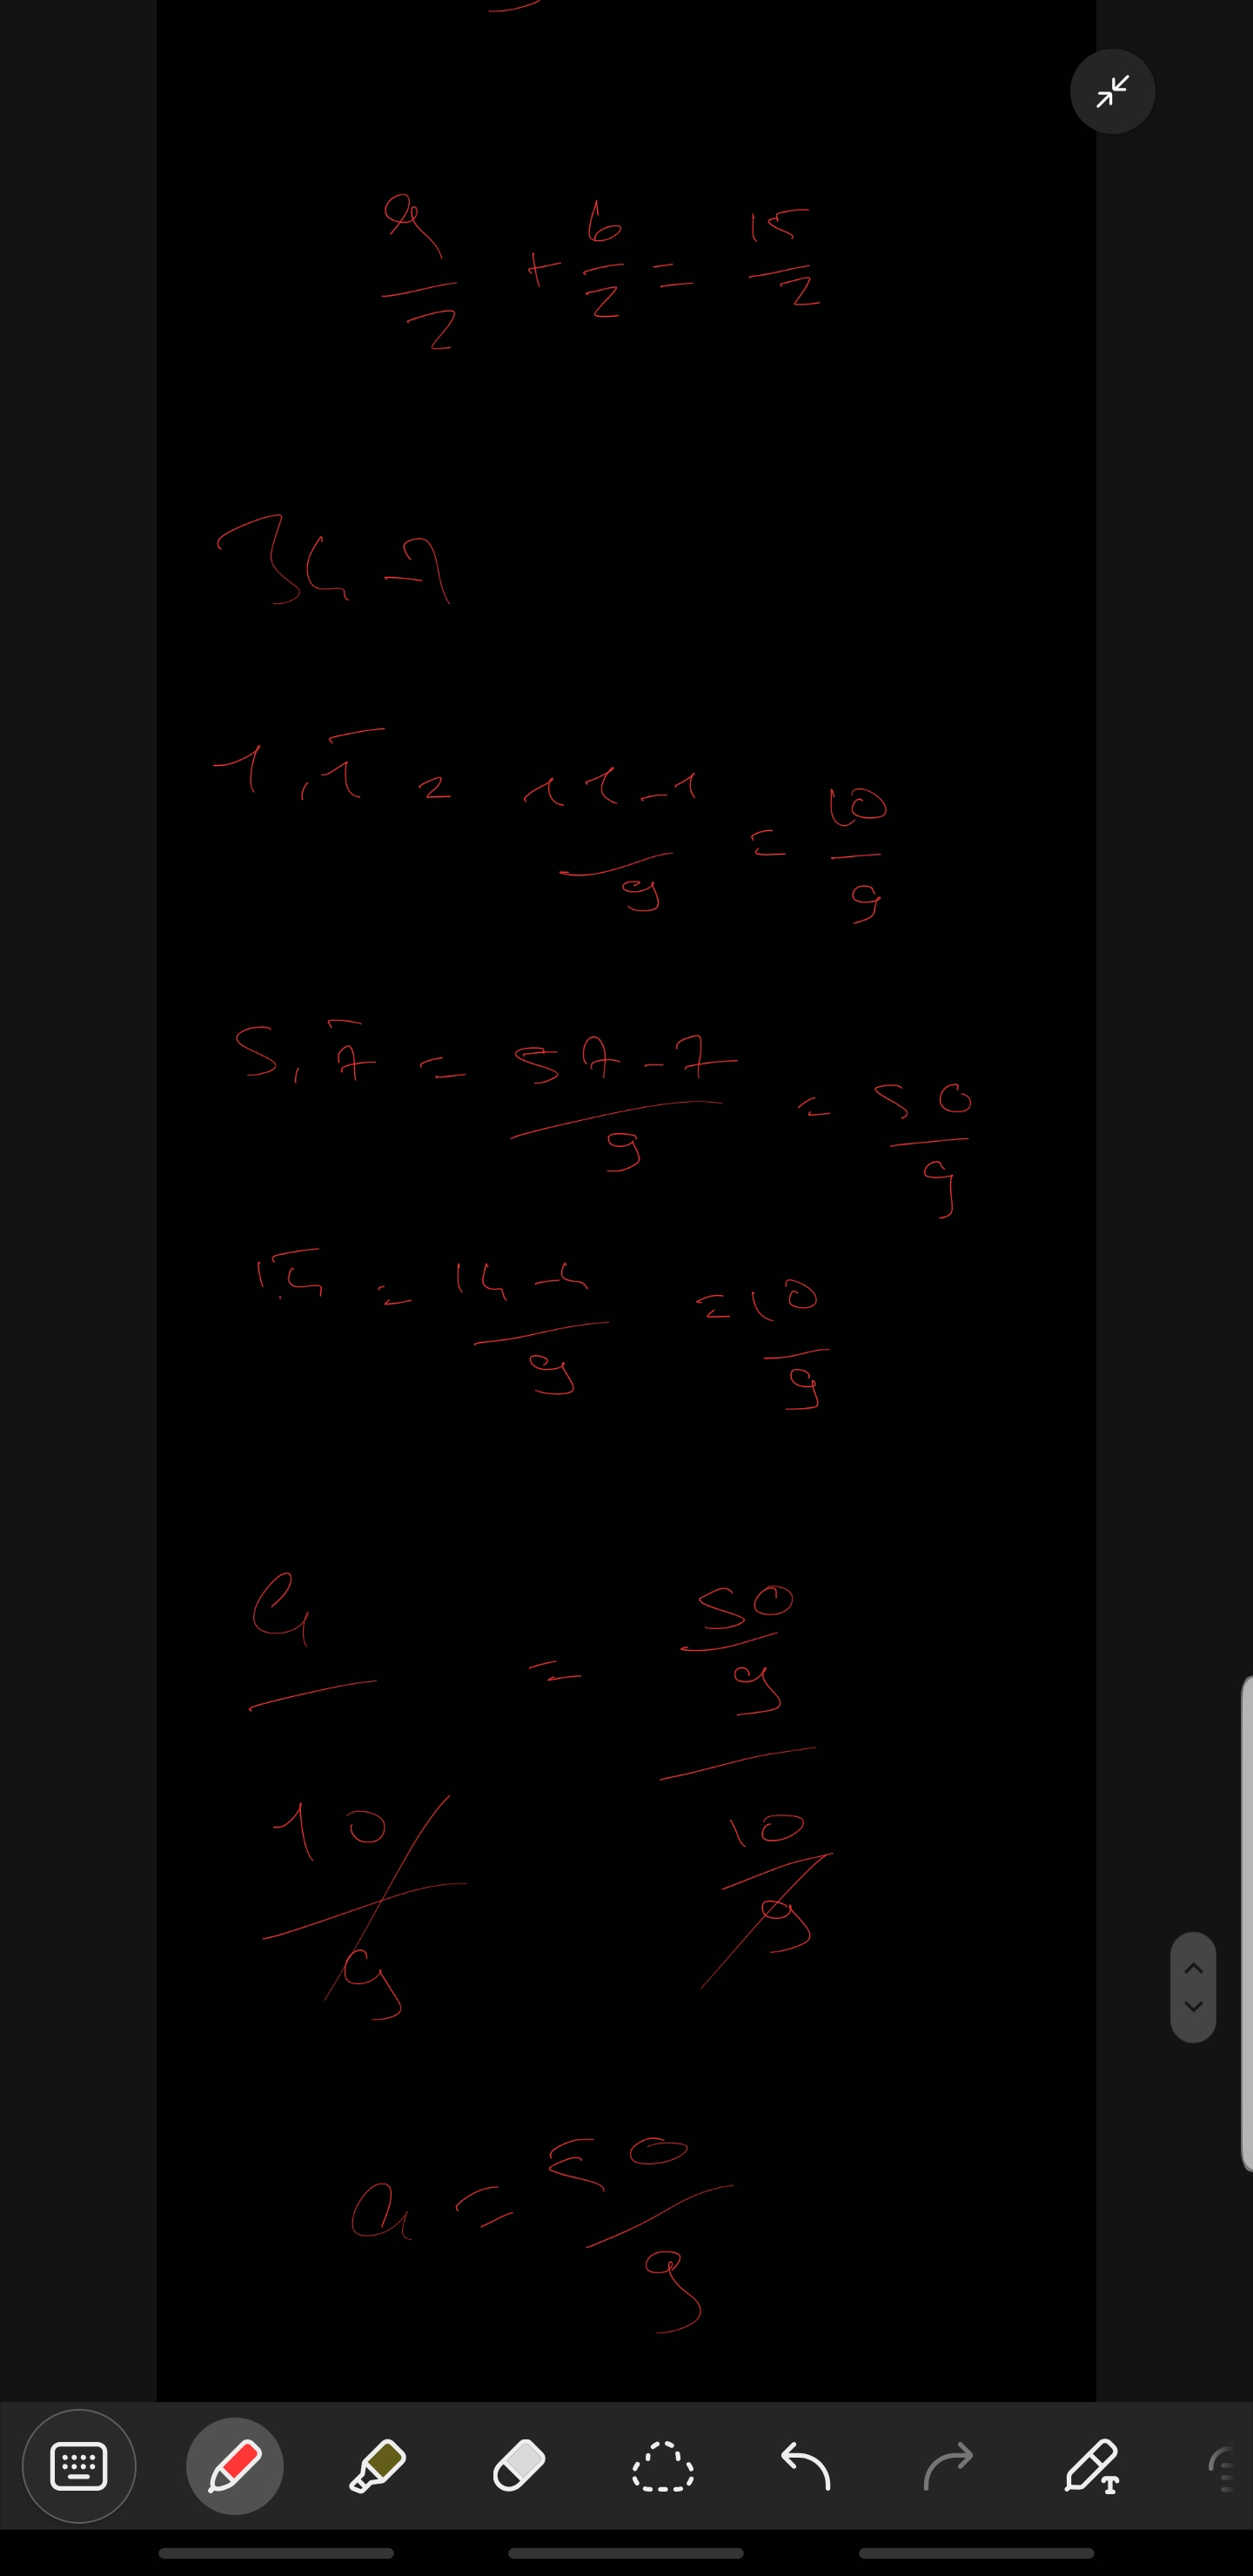 9/2 + 6/2 = 15/2
34-7
1,1̅ = 11-1/9 = 10/9
5,7̅ = 57-7/9 = 50/9
1.4̅ = 14-4/9 = 10/9
a/(10/9) = (50/9)/(10/9)
a = 50/9
T